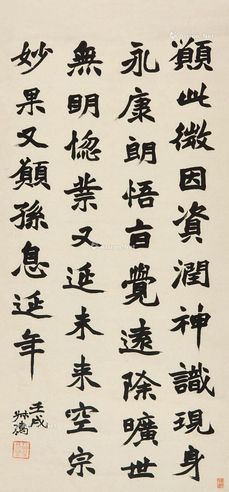 願此微因資潤神識現身
永康朗悟旨覺遠除曠世
無明惚業又延未来空宗
妙果又願孫息延年
壬戌